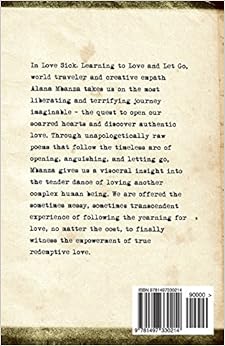 In Love Sick: Learning to Love and Let Go,
world traveler and creative empath
Alana Mbanza takes us on the most
liberating and terrifying journey
imaginable - the quest to open our
scarred hearts and discover authentic
love. Through unapologetically raw
poems that follow the timeless arc of
opening, anguishing, and letting go,
Mbanza gives us a visceral insight into
the tender dance of loving another
complex human being. We are offered the
sometimes messy, sometimes transcendent
experience of following the yearning for
love, no matter the cost, to finally
witness the empowerment of true
redemptive love.
ISBN 9781497330214
90000 >
9 781497 330214